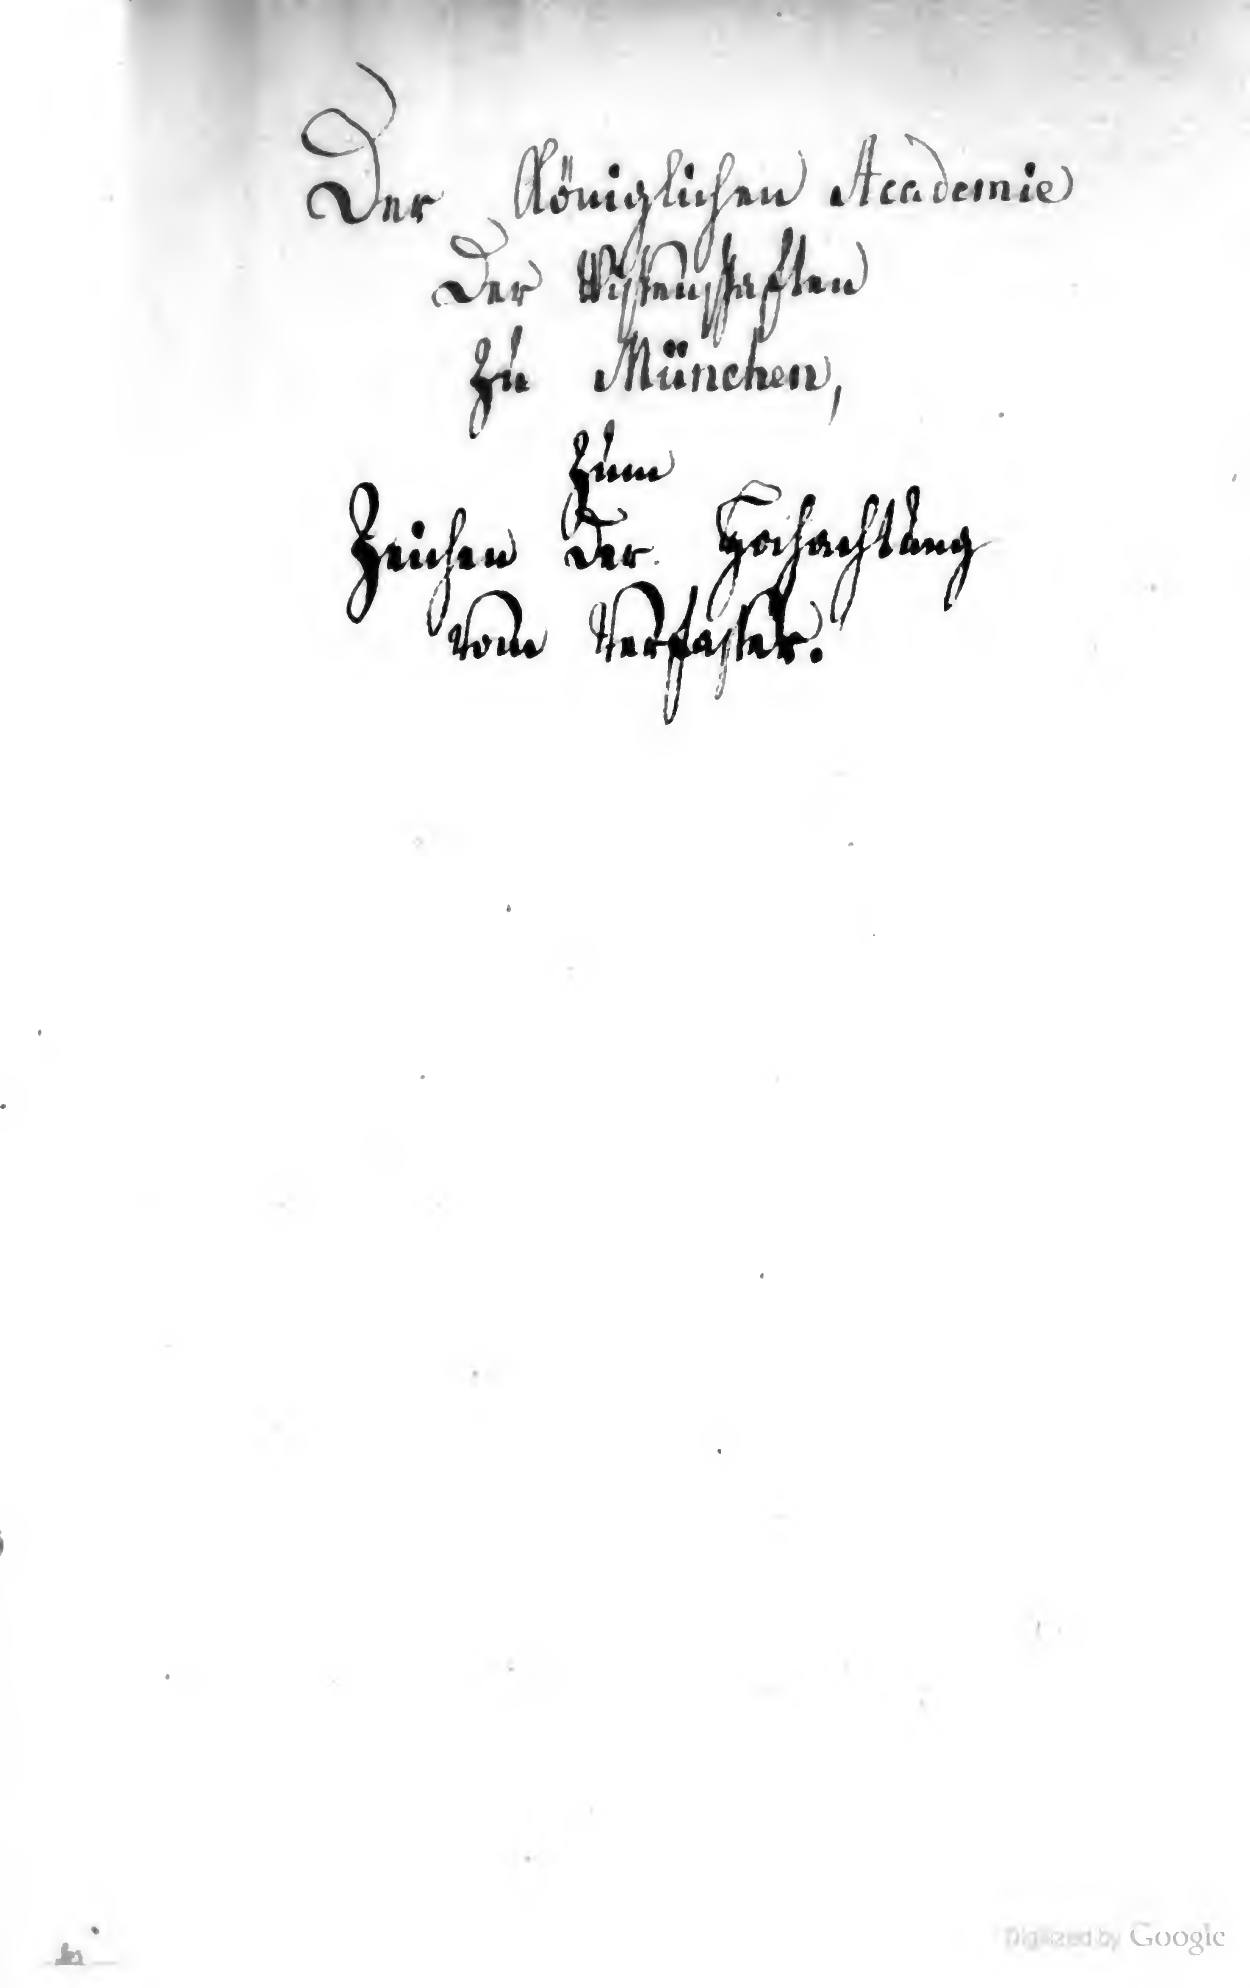 Der Königlichen Academie
der Wissenschaften
zu München,
zum
Zeichen der Hochachtung
vom Verfasser.
Digitized by Google